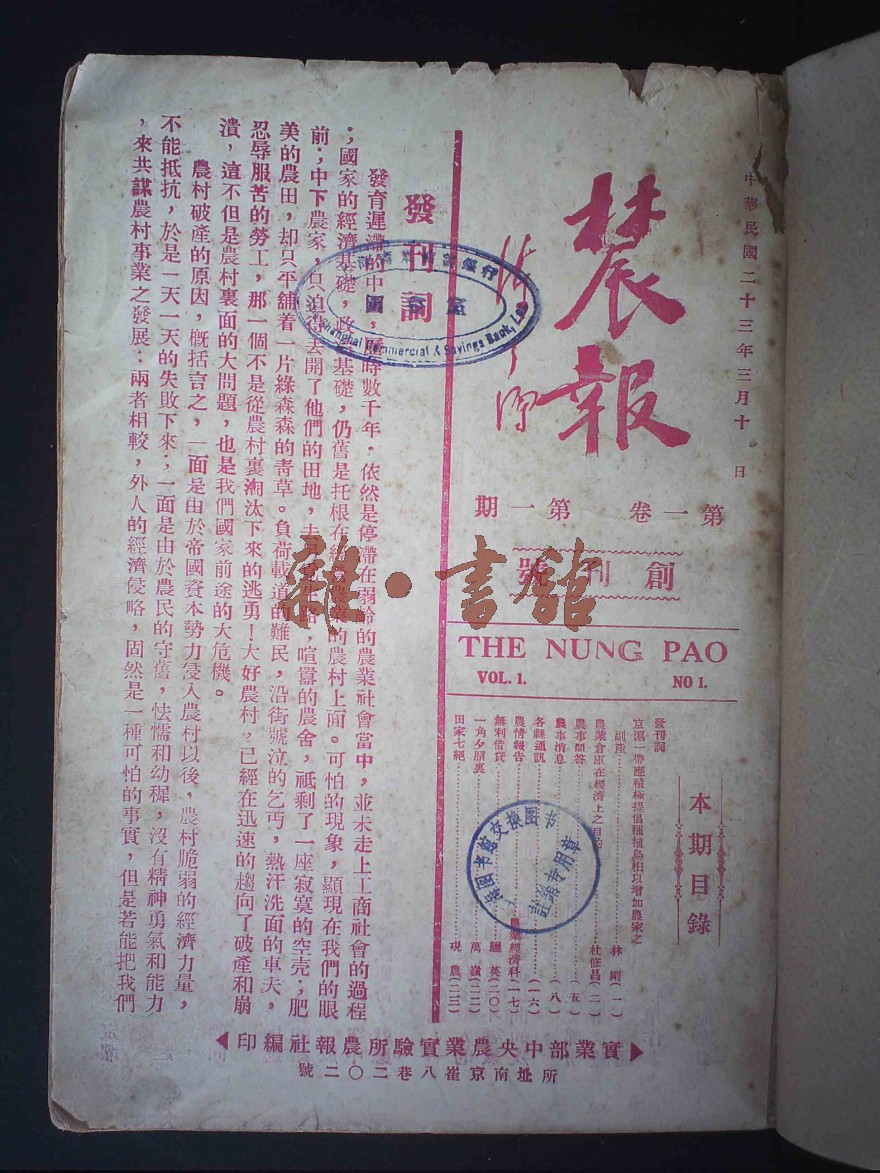 中華民國二十三年三月十日
農報
第一卷 第一期
創刊號
THE NUNG PAO
VOL. 1. NO 1.
本期目錄
發刊詞
京滬一帶應積極提倡種植烏桕以增加農家之
副產 林剛(一)
農業倉庫在經濟上之目的 杜修昌(二)
農事問答 (五)
農事消息 (八)
各縣通訊 (一六)
農情報告 農業經濟科(一七)
無利借貸 (二〇)
一角夕照裏 萬(二二)
田家七絕 硯農(二三)
發刊詞
發育遲滯的中國,歷時數千年,依然是停滯在弱齡的農業社會當中,並未走上工商社會的過程
;國家的經濟基礎,政治基礎,仍舊是托根在農業的農村上面。可怕的現象,顯現在我們的眼
前;中下農家,只迫得丟開了他們的田地,去,喧囂的農舍,祇剩了一座寂寞的空壳;肥
美的農田,却只平舖着一片綠森森的靑草。負荷載道的難民,沿街號泣的乞丐,熱汗洗面的車夫,
忍辱服苦的勞工,那一個不是從農村裏淘汰下來的逃勇!大好農村,已經在迅速的趨向了破產和崩
潰,這不但是農村裏面的大問題,也是我們國家前途的大危機。
農村破產的原因,槪括言之,一面是由於帝國資本勢力侵入農村以後,農村脆弱的經濟力量,
不能抵抗,於是一天一天的失敗下來;一面是由於農民的守舊,怯懦和幼稺,沒有精神勇氣和能力
,來共謀農村事業之發展:兩者相較,外人的經濟侵略,固然是一種可怕的事實,但是若能把我們
實業部中央農業實驗所農報社編印
所址南京崔八巷二〇二號
Shanghai Commercial & Savings Bank, Ltd.
图书馆交换图书
註銷专用章
雜·書館